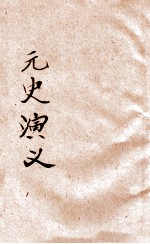 元史演义